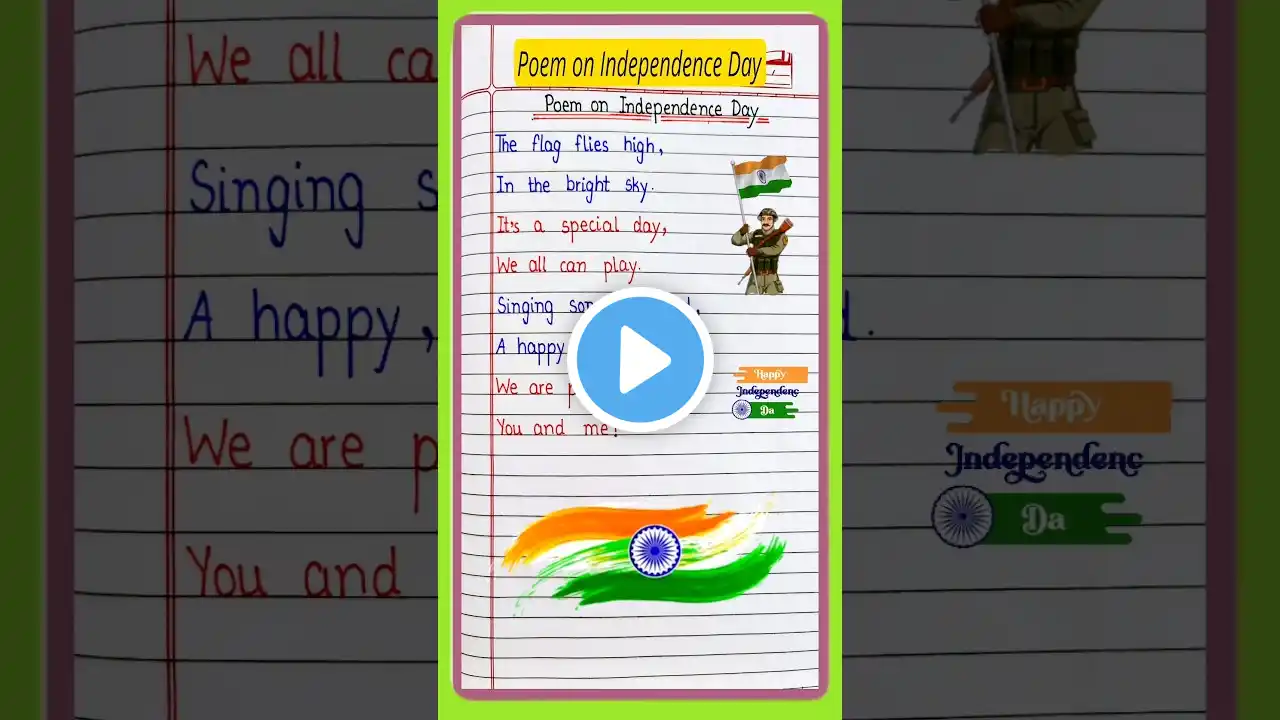 Poem on Independence Day
Poem on Independence Day
The flag flies high,
In the bright sky.
It's a special day,
We all can play.
Singing
A happy
We are
You and me!
Happy
Independenc
Da
We all
Singing
A happy,
We are
You and
Happy
Independenc
Da